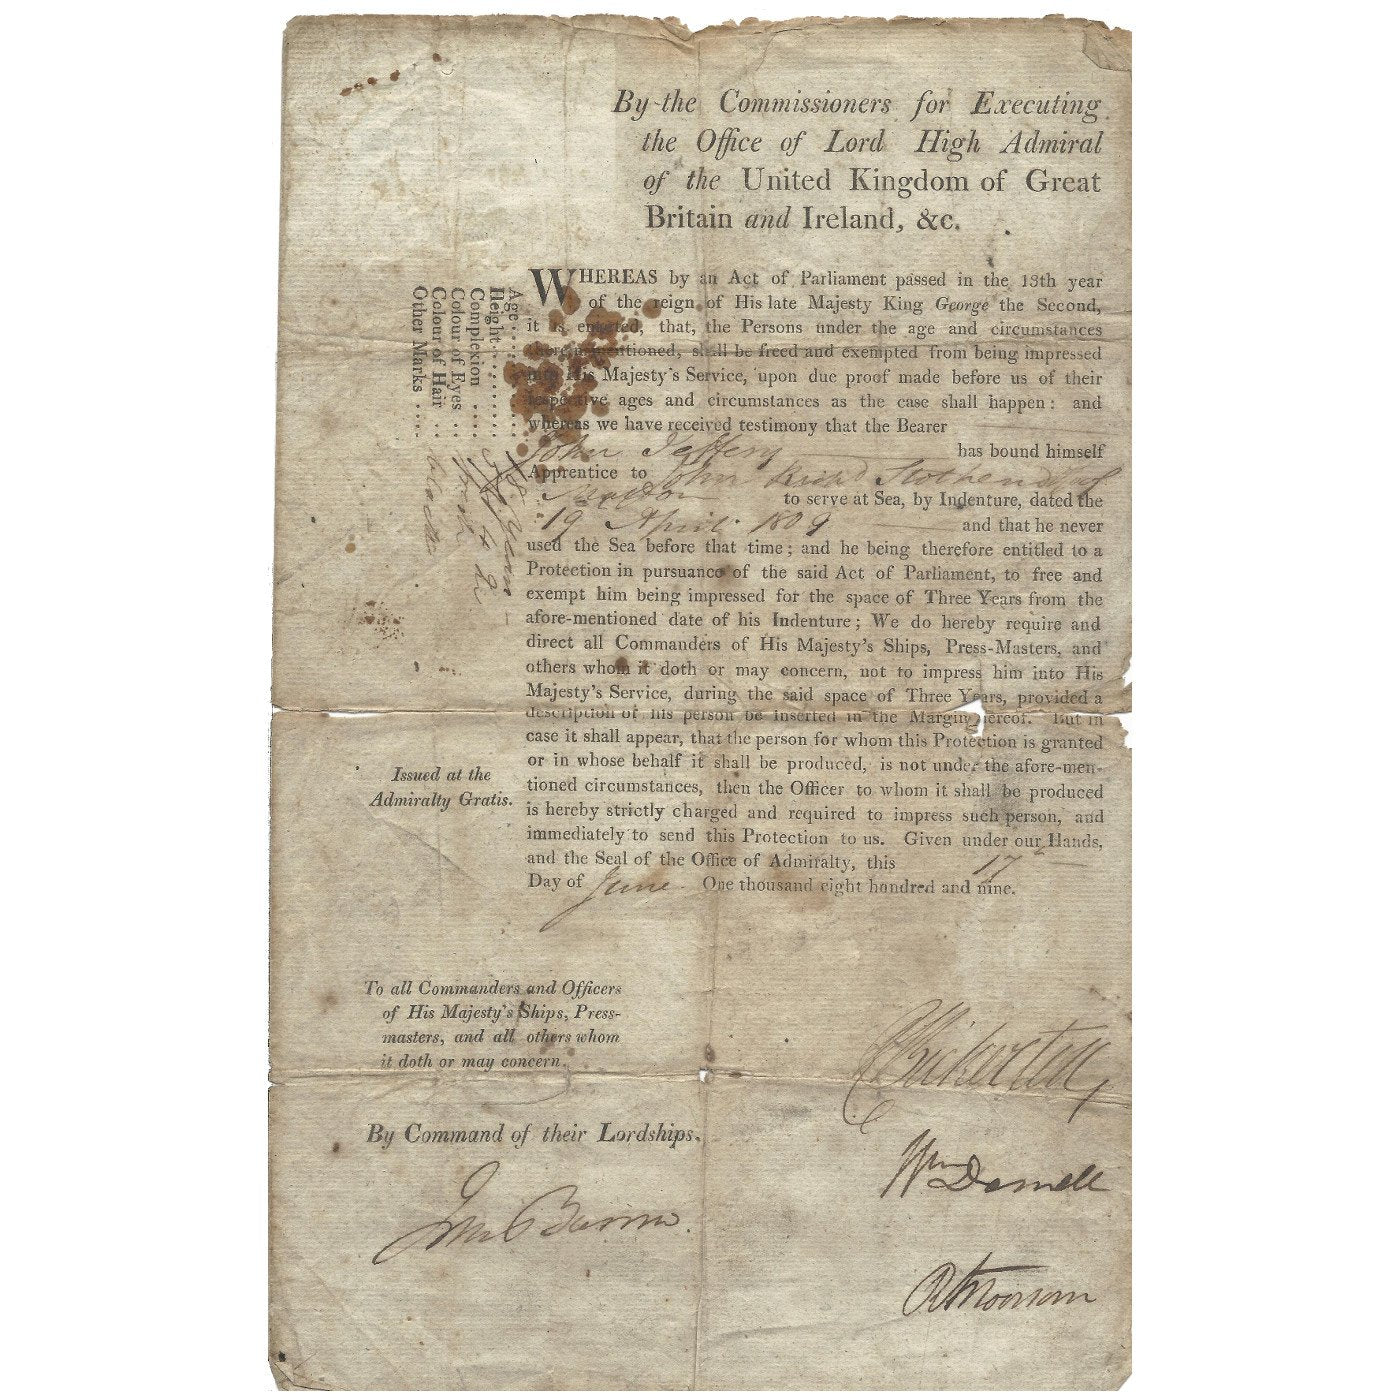 By the Commissioners for Executing
the Office of Lord High Admiral
of the United Kingdom of Great
Britain and Ireland, &c.
WHEREAS by an Act of Parliament passed in the 13th year
of the reign of His late Majesty King George the Second,
it is enacted, that, the Persons under the age and circumstances
thereinmentioned, shall be freed and exempted from being impressed
into His Majesty's Service, upon due proof made before us of their
respective ages and circumstances as the case shall happen: and
whereas we have received testimony that the Bearer
John Jeffery has bound himself
Apprentice to John Richd
to serve at Sea, by Indenture, dated the
19 April 1809 and that he never
used the Sea before that time; and he being therefore entitled to a
Protection in pursuance of the said Act of Parliament, to free and
exempt him being impressed for the space of Three Years from the
afore-mentioned date of his Indenture; We do hereby require and
direct all Commanders of His Majesty's Ships, Press-Masters, and
others whom it doth or may concern, not to impress him into His
Majesty's Service, during the said space of Three Years, provided a
description of his person be inserted in the Margin hereof. But in
case it shall appear, that the person for whom this Protection is granted
or in whose behalf it shall be produced, is not under the afore-men-
tioned circumstances, then the Officer to whom it shall be produced
is hereby strictly charged and required to impress such person, and
immediately to send this Protection to us. Given under our Hands,
and the Seal of the Office of Admiralty, this 17
Day of June One thousand eight hundred and nine.
Age......
Height.........
Complexion ....
Colour of Eyes ..
Colour of Hair ..
Other Marks ....
Issued at the
Admiralty Gratis.
To all Commanders and Officers
of His Majesty's Ships, Press-
masters, and all others whom
it doth or may concern.
By Command of their Lordships.
R Bickerton
Wm Domett
R Moorsom